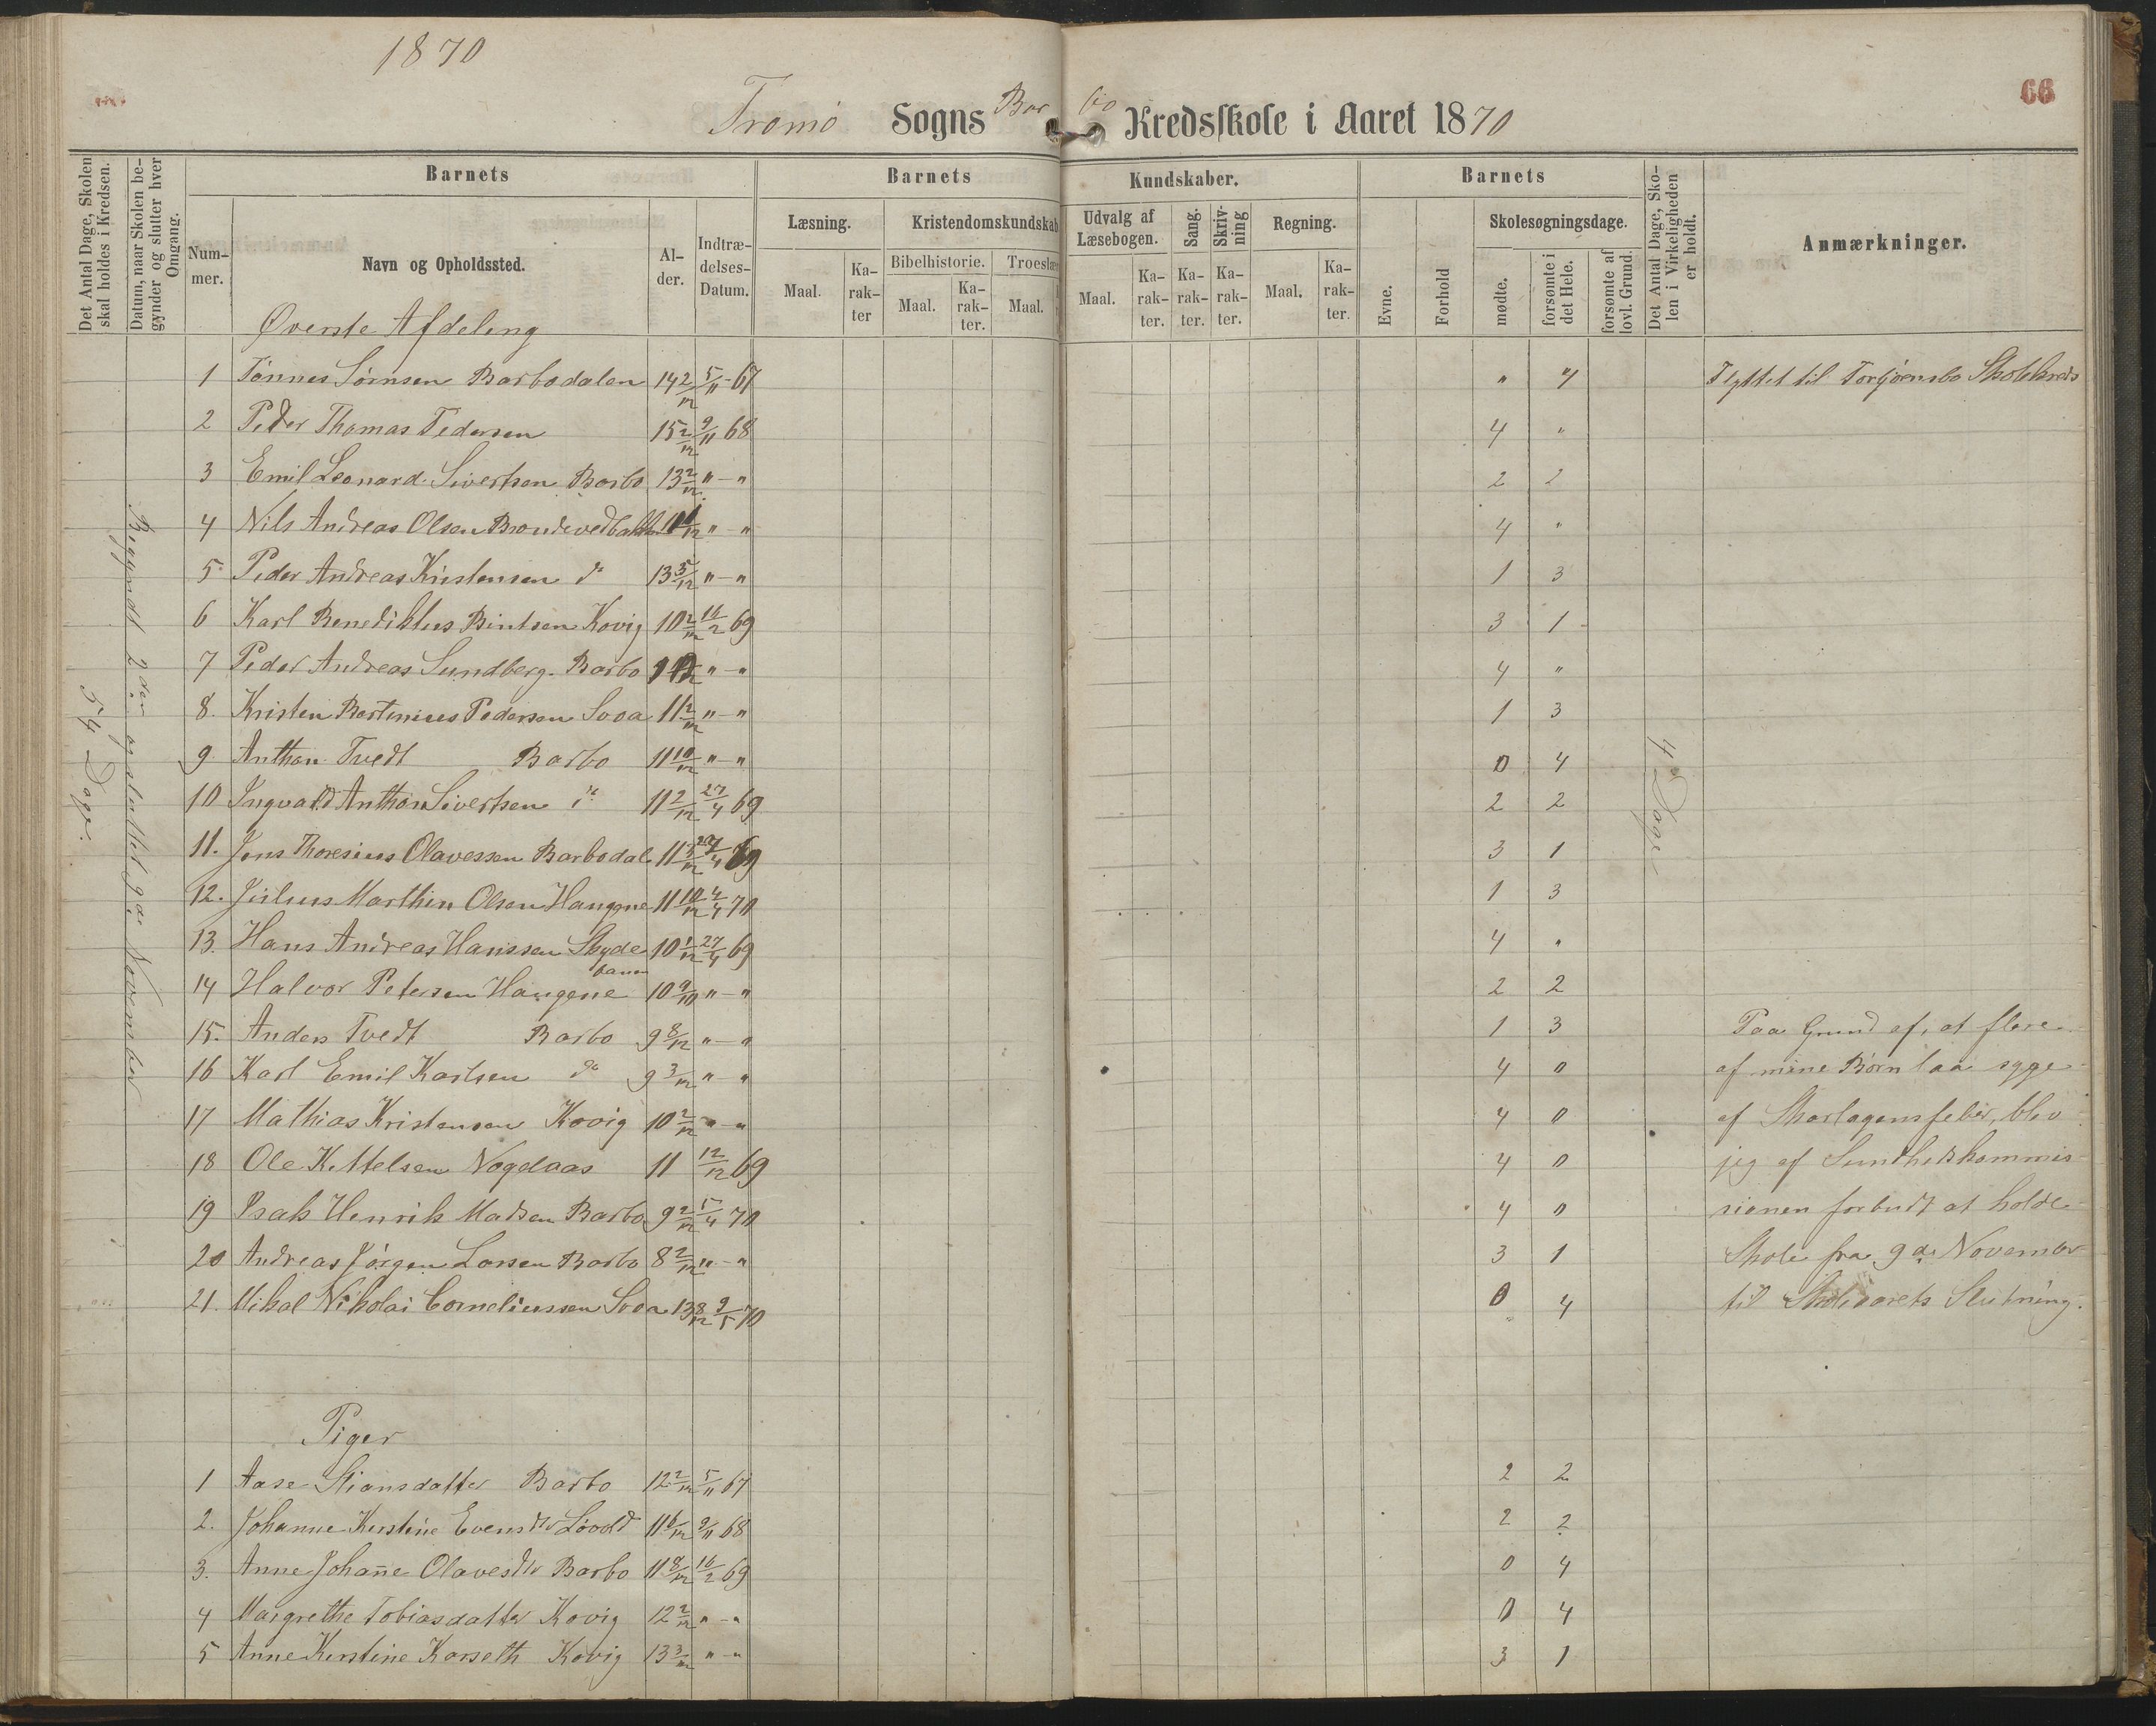 1870
66
Tromö Sogns Barbo Kredsskole i Aaret 1870
Det Antal Dage, Skolen skal holdes i Kredsen.
Datum, naar Skolen begynder og slutter hver Omgang.
Barnets
Barnets
Kundskaber.
Barnets
Det Antal Dage, Skolen i Virkeligheden er holdt.
Anmærkninger.
Nummer.
Navn og Opholdssted.
Alder.
Indtrædelses-Datum.
Læsning.
Kristendomskundskab
Udvalg af Læsebogen.
Sang.
Skrivning
Regning.
Evne.
Forhold
Skolesøgningsdage.
Bibelhistorie.
Troeslæ
Maal.
Karakter
Maal.
Karakter.
Maal.
Maal.
Karakter.
Karakter.
Karakter.
Maal.
Karakter.
mødte.
forsømte i det Hele.
forsømte af lovl. Grund.
Øverste Afdeling
54 Dage.
Begyndt 2den og sluttet 9de November
4 Dage
1 Tönnes Sörnsen Barbodalen 14 2/12 5/11-67 " " Flyttet til Torbjörnsbo Skolekreds
2 Peder Thomas Pedersen 15 2/12 9/11 68 4 "
3 Emil Leonard Sivertsen Barbo 13 2/12 "-" 2 2
4 Nils Andreas Olsen "-" 4 "
5 Peder Andreas Kristensen do 13 5/12 "-" 1 3
6 Karl Benediktus Bentsen Kovig 10 2/12 16/2 69 3 1
7 Peder Andreas Sundberg. Barbo "-" 4 "
8. Kristen Bertinius Pedersen Sooa 11 2/12 "-" 1 3
9. Anthon Tvedt Barbo 11 10/12 "-" 0 4
10 Ingvald Anthon Sivertsen do 11 2/12 27/4 69 2 2
11. Jens Thoresius Olavessen Barbodal 11 3/12 27/4 69 3 1
12. Julius Marthin Olsen Haugene 11 10/12 4/4 70 1 3
13. Hans Andreas Hanssen Skydebanen 10 1/12 27/4 69 4 "
14 Halvor Petersen Haugene 10 9/10 "-" 2 2
15. Anders Tvedt Barbo 9 8/12 "-" 1 3 Paa Grund af, at flere
16 Karl Emil Karlsen do 9 3/12 "-" 4 0 af mine Börn laa syge
17 Mathias Kristensen Kovig 10 2/12 "-" 4 0 af Skarlagensfeber, blev
18 Ole Kittelsen Vogelaas 11 12/12 69 4 0 jeg af Sundhedskommis
19 Isak Henrik Madsen Barbo 9 2/12 5/4 70 4 0 sionen forbudt at holde
20 Andreas Jörgen Larsen Barbo 8 2/12 "-" 3 1 Skole fra 9de November
21. Mikal Nikolai Corneliussen Sooa 13 8/12 9/5 70 0 4 til Skoleaarets Slutning.
Piger
1 Aase Stiansdatter Barbo 12 2/12 5/11 67 2 2
2. Johanne Kirstine Evensdtr Lövold 11 6/12 9/11 68 2 2
3. Anne Johañe Olavesdtr Barbo 11 8/12 16/2 69 0 4
4 Margrethe Tobiasdatter Kovig 12 2/12 "-" 0 4
5 Anne Kirstine Korseth Kovig 13 3/12 "-" 3 1